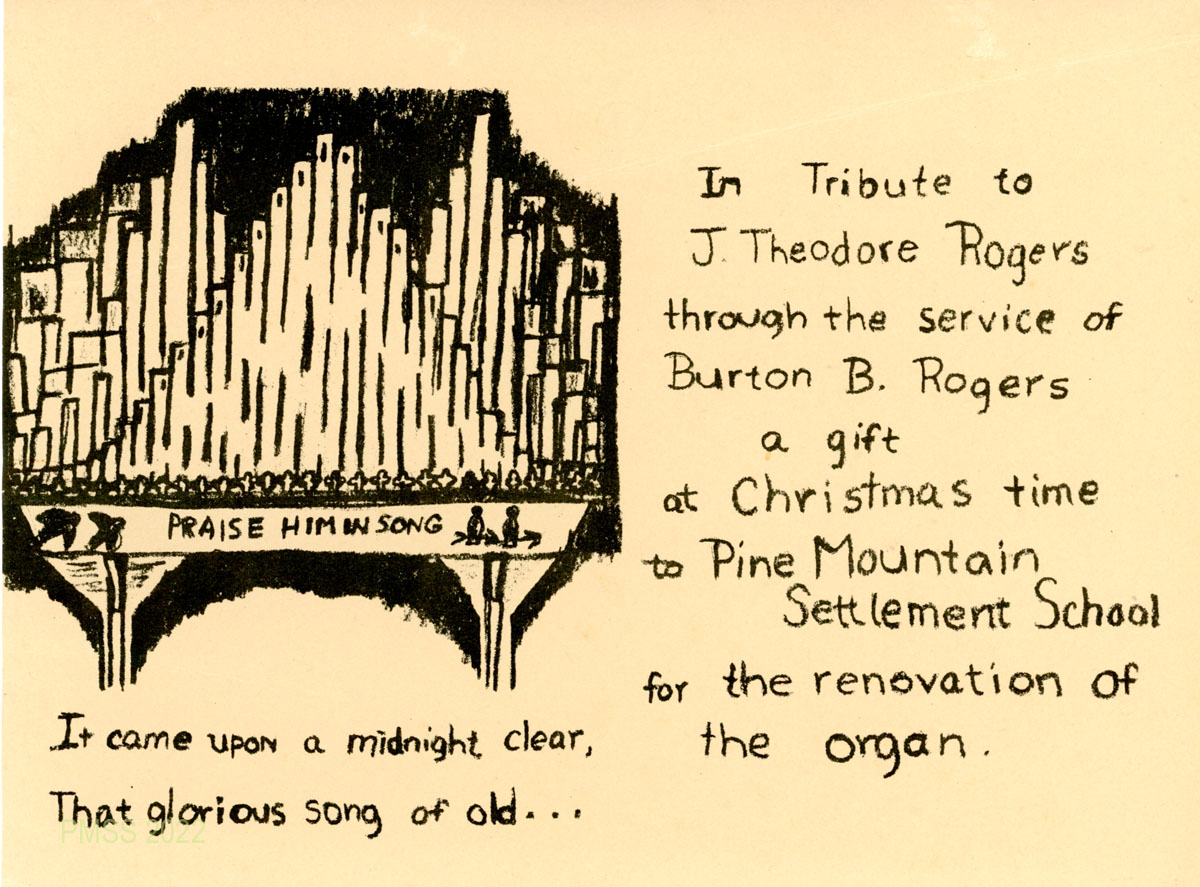 PRAISE HIM IN SONG
It came upon a midnight clear,
That glorious song of old...
PMSS 2022
In Tribute to
J. Theodore Rogers
through the service of
Burton B. Rogers
a gift
at Christmas time
to Pine Mountain
Settlement School
for the renovation of
the organ.